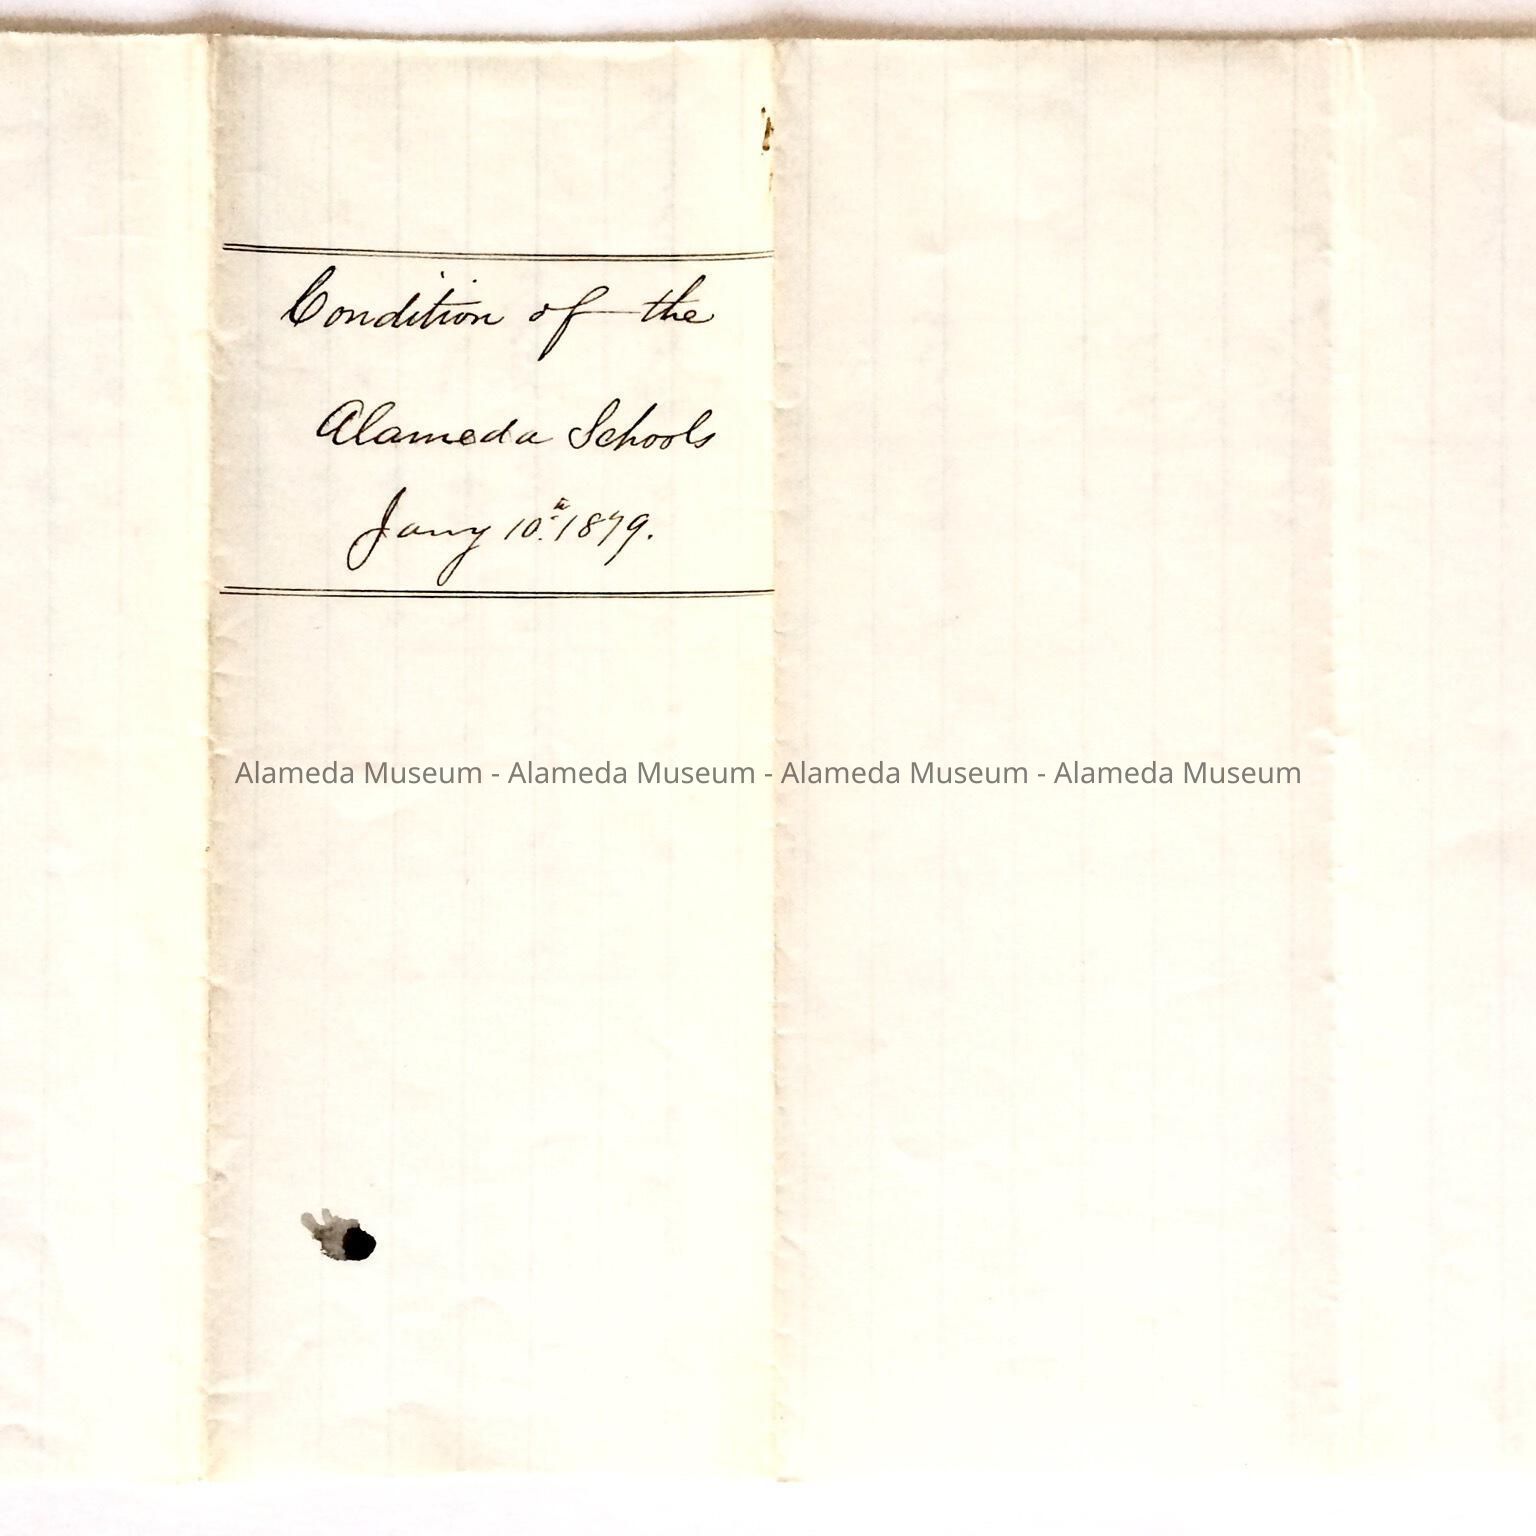 Condition of the
Alameda Schools
Jany 10th. 1879.
Alameda Museum - Alameda Museum - Alameda Museum - Alameda Museum